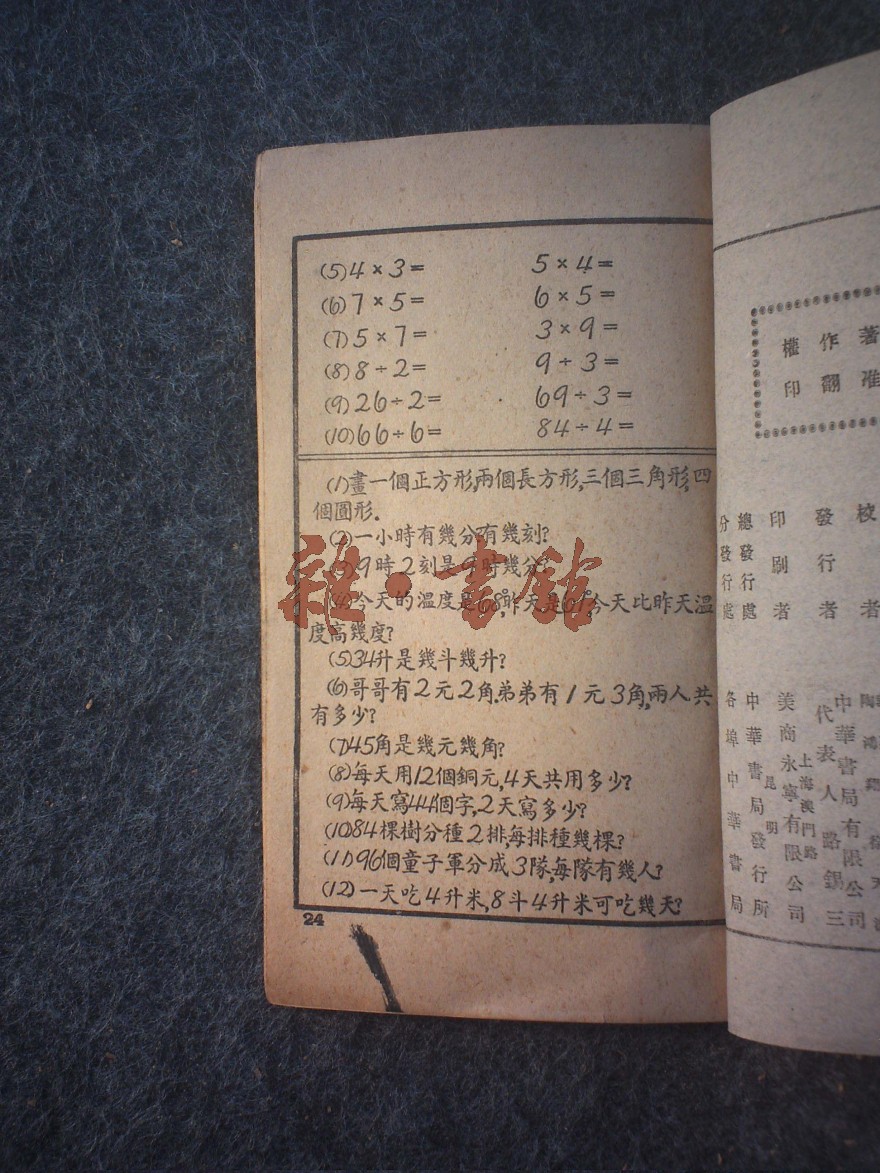 (5) 4 × 3 = 5 × 4 =
(6) 7 × 5 = 6 × 5 =
(7) 5 × 7 = 3 × 9 =
(8) 8 ÷ 2 = 9 ÷ 3 =
(9) 26 ÷ 2 = 69 ÷ 3 =
(10) 66 ÷ 6 = 84 ÷ 4 =
(1)畫一個正方形,兩個長方形,三個三角形,四
個圓形.
(2)一小時有幾分?有幾刻?
(3)9時2刻是9時幾分?
(4)今天的溫度是68°,昨天是61°,今天比昨天溫
度高幾度?
(5)34升是幾斗幾升?
(6)哥哥有2元2角.弟弟有1元3角,兩人共
有多少?
(7)45角是幾元幾角?
(8)每天用12個銅元,4天共用多少?
(9)每天寫44個字,2天寫多少?
(10)84棵樹分種2排,每排種幾棵?
(11)96個童子軍分成3隊,每隊有幾人?
(12)一天吃4升米,8斗4升米可吃幾天?
24
雜·書館
著作權
准翻印
校者
發行者
中華書局有限公司
代表人路錫三
上海澳門路
印刷者
美商永寧有限公司
總發行處
昆明
中華書局發行所
分發行處
各埠中華書局